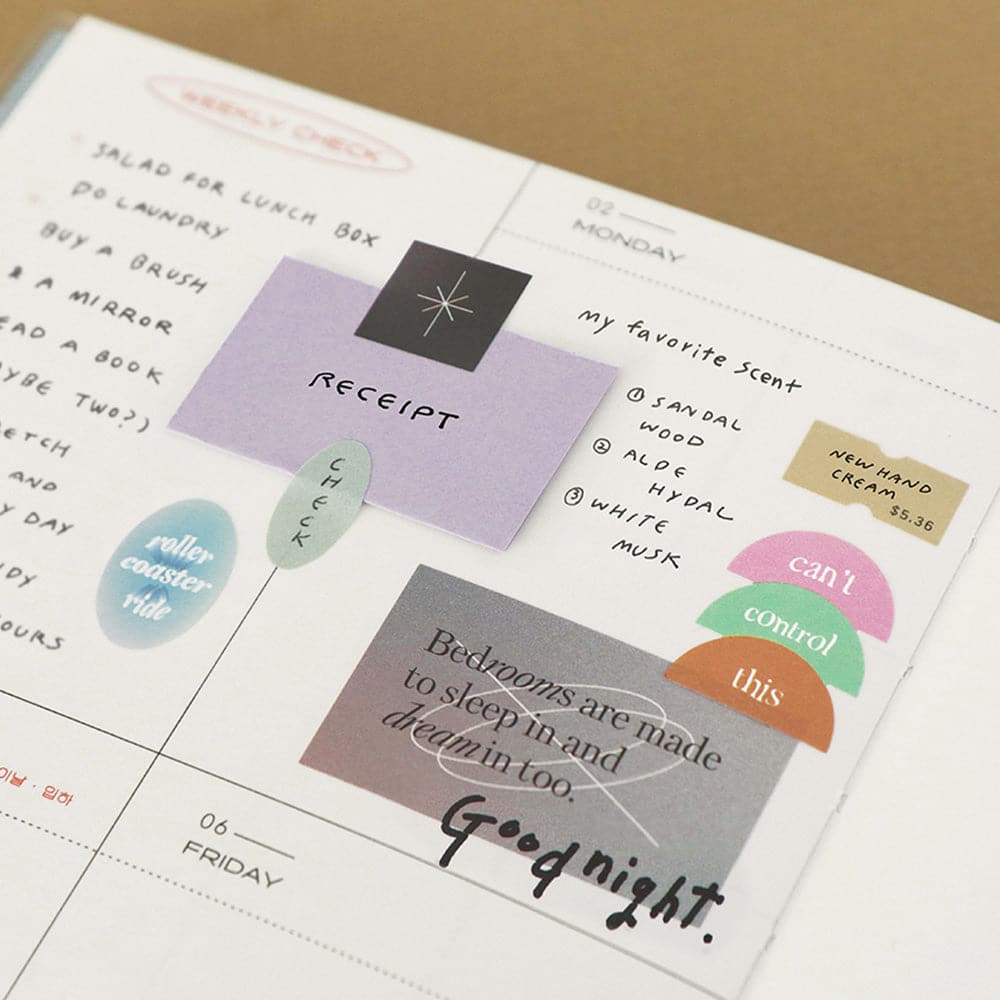 WEEKLY CHECK
SALAD FOR LUNCH BOX
DO LAUNDRY
BUY A BRUSH
& A MIRROR
A BOOK
TWO?)
AND
DAY
RECEIPT
CHECK
roller
coaster
ride
이날 · 입하
02
MONDAY
my favorite scent
① SANDAL
WOOD
② ALDE
HYDAL
③ WHITE
MUSK
NEW HAND
CREAM
$5.36
can't
control
this
Bedrooms are made
to sleep in and
dream in too.
Good night.
06
FRIDAY